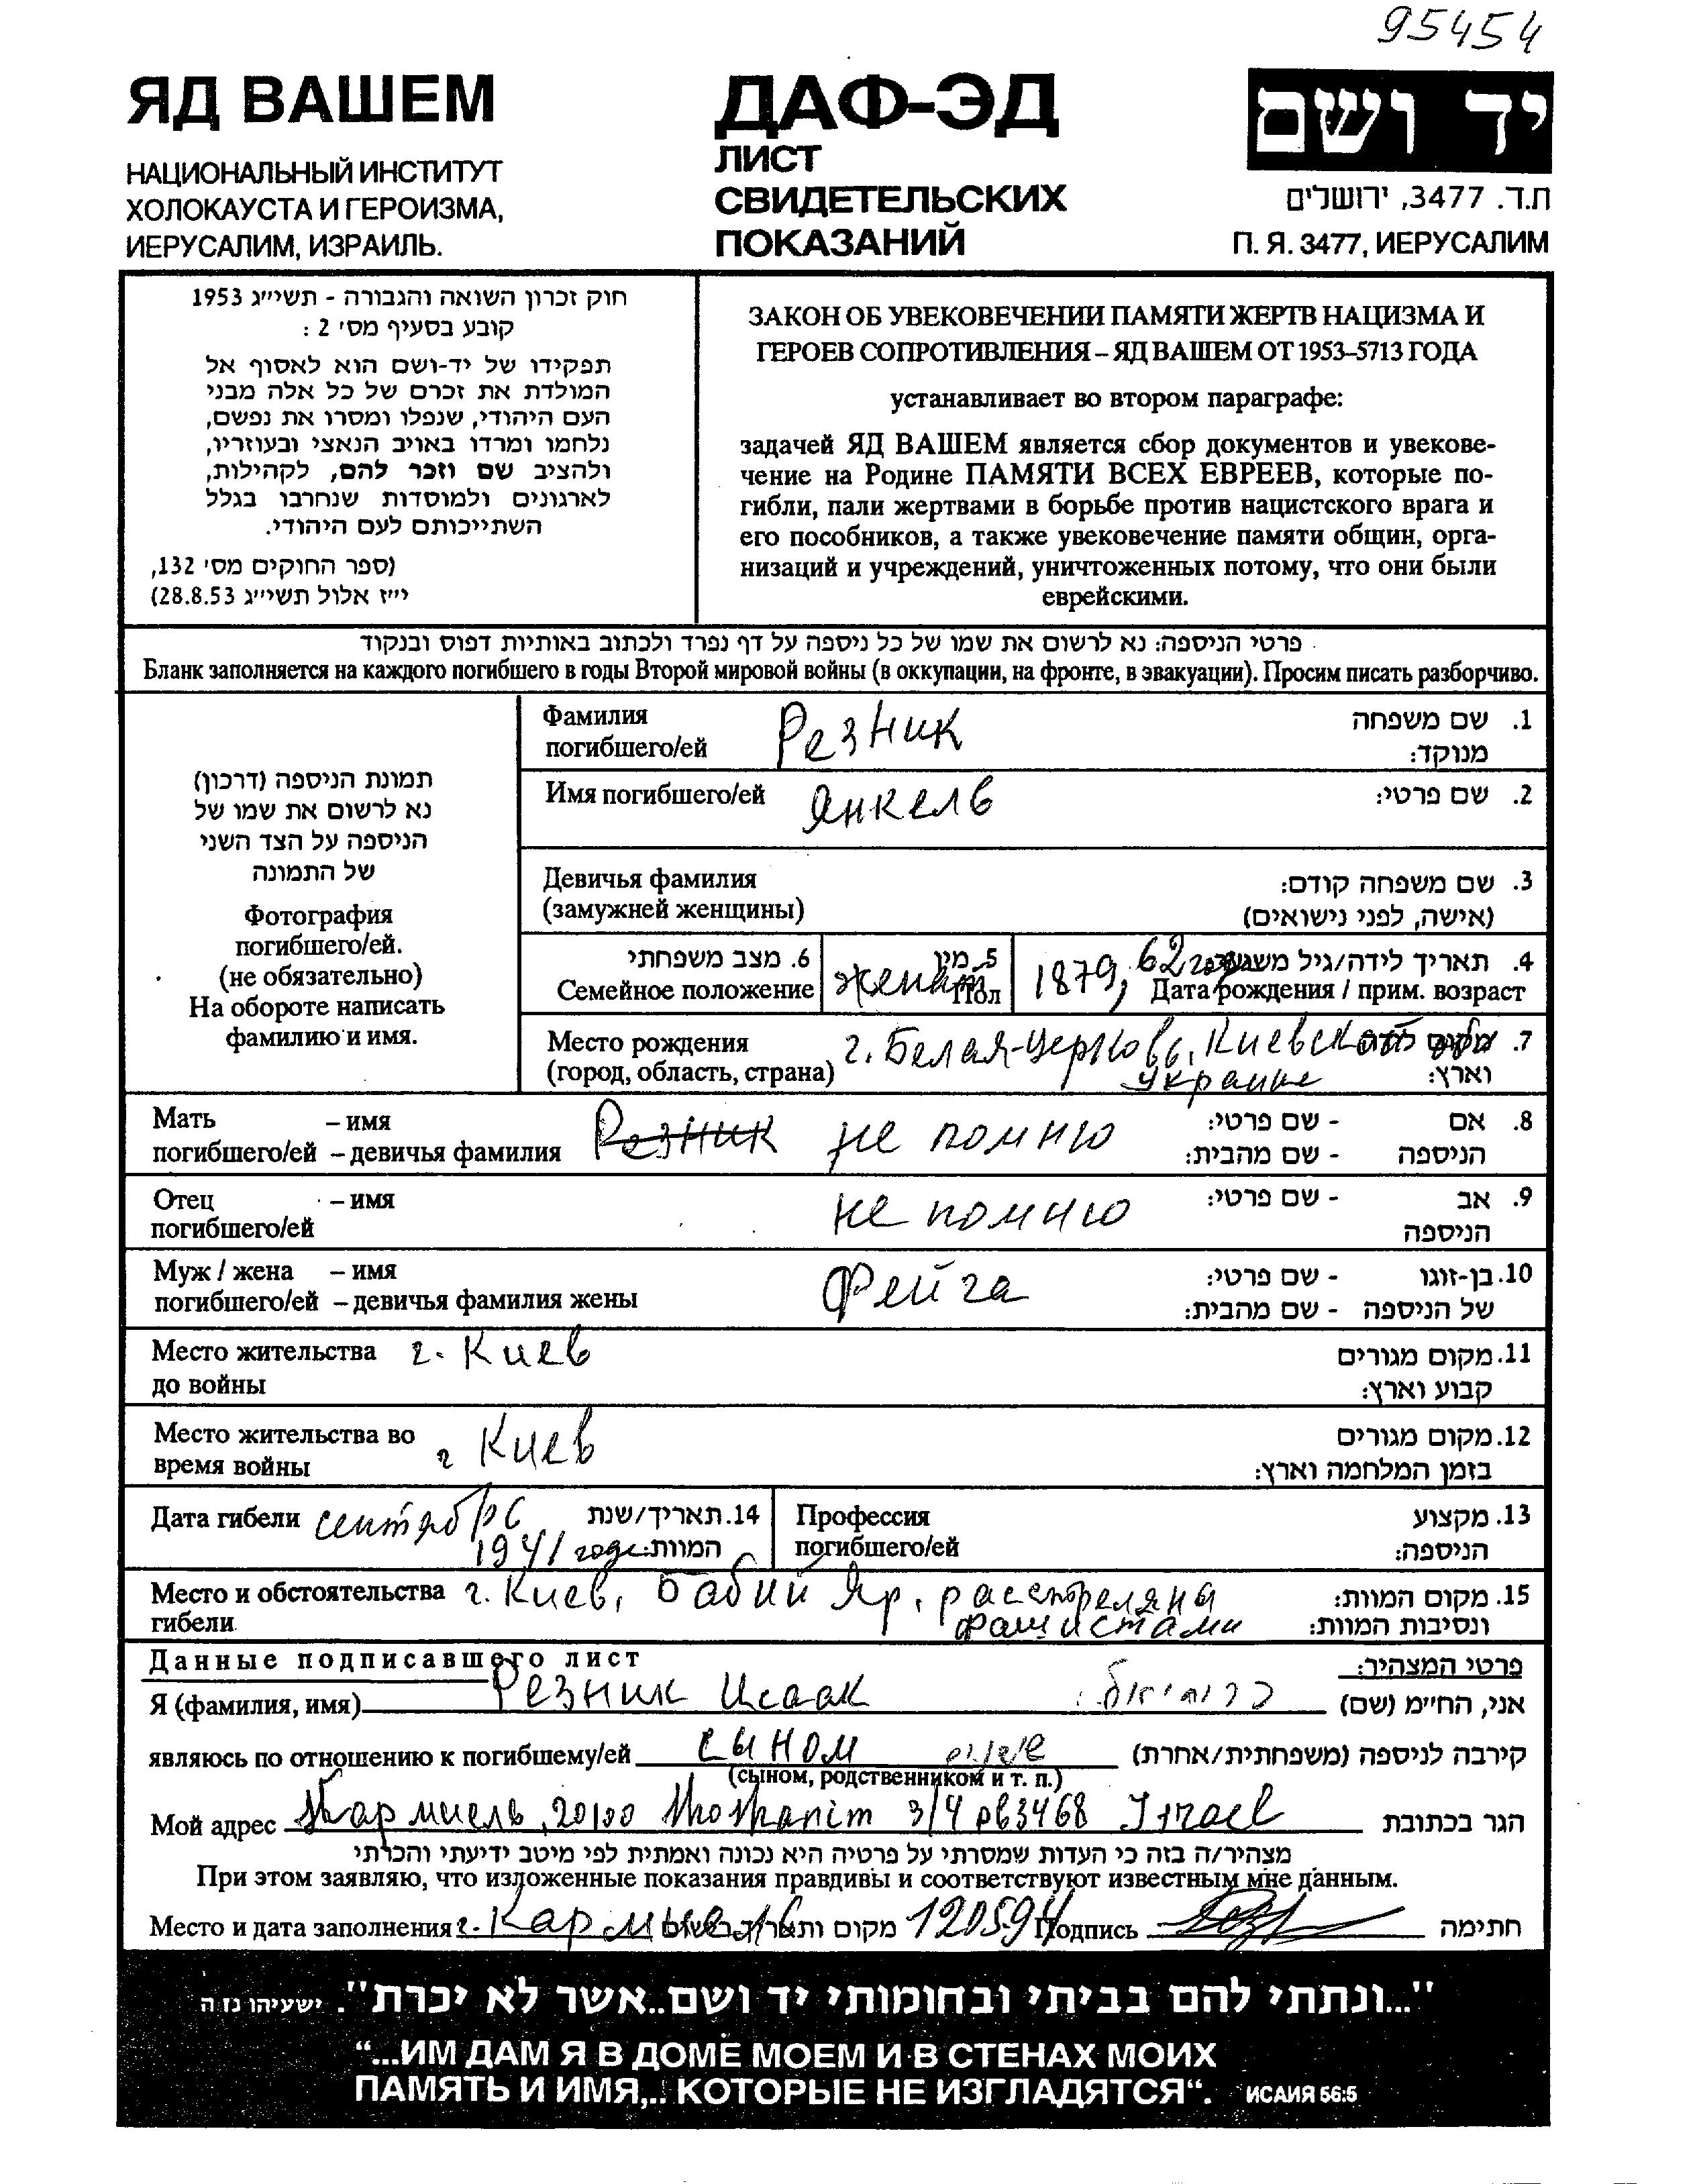 95454
ЯД ВАШЕМ
НАЦИОНАЛЬНЫЙ ИНСТИТУТ
ХОЛОКАУСТА И ГЕРОИЗМА,
ИЕРУСАЛИМ, ИЗРАИЛЬ.
ДАФ-ЭД
ЛИСТ
СВИДЕТЕЛЬСКИХ
ПОКАЗАНИЙ
יד ושם
ת.ד. 3477, ירושלים
П. Я. 3477, ИЕРУСАЛИМ
חוק זכרון השואה והגבורה - תשי״ג 1953
קובע בסעיף מס׳ 2 :
תפקידו של יד-ושם הוא לאסוף אל
המולדת את זכרם של כל אלה מבני
העם היהודי, שנפלו ומסרו את נפשם,
נלחמו ומרדו באויב הנאצי ובעוזריו,
ולהציב שם וזכר להם, לקהילות,
לארגונים ולמוסדות שנחרבו בגלל
השתייכותם לעם היהודי.
(ספר החוקים מס׳ 132,
י״ז אלול תשי״ג 28.8.53)
ЗАКОН ОБ УВЕКОВЕЧЕНИИ ПАМЯТИ ЖЕРТВ НАЦИЗМА И
ГЕРОЕВ СОПРОТИВЛЕНИЯ – ЯД ВАШЕМ ОТ 1953–5713 ГОДА
устанавливает во втором параграфе:
задачей ЯД ВАШЕМ является сбор документов и увекове-
чение на Родине ПАМЯТИ ВСЕХ ЕВРЕЕВ, которые по-
гибли, пали жертвами в борьбе против нацистского врага и
его пособников, а также увековечение памяти общин, орга-
низаций и учреждений, уничтоженных потому, что они были
еврейскими.
פרטי הניספה: נא לרשום את שמו של כל ניספה על דף נפרד ולכתוב באותיות דפוס ובנקוד
Бланк заполняется на каждого погибшего в годы Второй мировой войны (в оккупации, на фронте, в эвакуации). Просим писать разборчиво.
תמונת הניספה (דרכון)
נא לרשום את שמו של
הניספה על הצד השני
של התמונה
Фотография
погибшего/ей.
(не обязательно)
На обороте написать
фамилию и имя.
Фамилия Резник 1. שם משפחה
погибшего/ей מנוקד:
Имя погибшего/ей Янкель 2. שם פרטי:
Девичья фамилия 3. שם משפחה קודם:
(замужней женщины) (אישה, לפני נישואים)
6. מצב משפחתי 5. מין 4. תאריך לידה/גיל משוער:
Семейное положение женат Пол 1879, 62 года Дата рождения / прим. возраст
Место рождения г. Белая-Церковь, Киевской обл 7. מקום לידה
(город, область, страна) Украине וארץ:
Мать – имя 8. אם - שם פרטי:
погибшего/ей – девичья фамилия Резник не помню הניספה - שם מהבית:
Отец – имя не помню 9. אב - שם פרטי:
погибшего/ей הניספה
Муж / жена – имя Фейга 10. בן-זוגו - שם פרטי:
погибшего/ей – девичья фамилия жены של הניספה - שם מהבית:
Место жительства г. Киев 11. מקום מגורים
до войны קבוע וארץ:
Место жительства во г Киев 12. מקום מגורים
время войны בזמן המלחמה וארץ:
Дата гибели сентябрь 14. תאריך/שנת Профессия 13. מקצוע
1941 году המוות: погибшего/ей הניספה:
Место и обстоятельства г. Киев, Бабий Яр, расстреляны 15. מקום המוות:
гибели фашистами ונסיבות המוות:
Данные подписавшего лист פרטי המצהיר:
Я (фамилия, имя) Резник Исаак אני, החי״מ (שם)
являюсь по отношению к погибшему/ей сыном קירבה לניספה (משפחתית/אחרת)
(сыном, родственником и т. п.)
Мой адрес Кармиель, 20100 Shoshanim 3/4 pb3468 Israel הגר בכתובת
מצהיר/ה בזה כי העדות שמסרתי על פרטיה היא נכונה ואמתית לפי מיטב ידיעתי והכרתי
При этом заявляю, что изложенные показания правдивы и соответствуют известным мне данным.
Место и дата заполнения г. Кармиель מקום ותאריך רישום 120594 Подпись חתימה
"...ונתתי להם בביתי ובחומותי יד ושם..אשר לא יכרת". ישעיהו נז ה
“...ИМ ДАМ Я В ДОМЕ МОЕМ И В СТЕНАХ МОИХ
ПАМЯТЬ И ИМЯ,.. КОТОРЫЕ НЕ ИЗГЛАДЯТСЯ“. ИСАИЯ 56:5